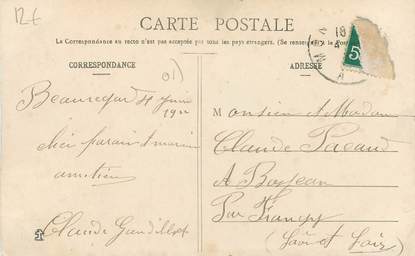 12€
CARTE POSTALE
La Correspondance au recto n'est pas acceptée par tous les pays étrangers. (Se renseigner à la Poste)
CORRESPONDANCE
ADRESSE
01)
5
Beauregard 4 juin
Monsieur et Madame
Claude Pacaud
A
Par Frangy
(Saône et Loire)
amitiés
Claude Gandillet